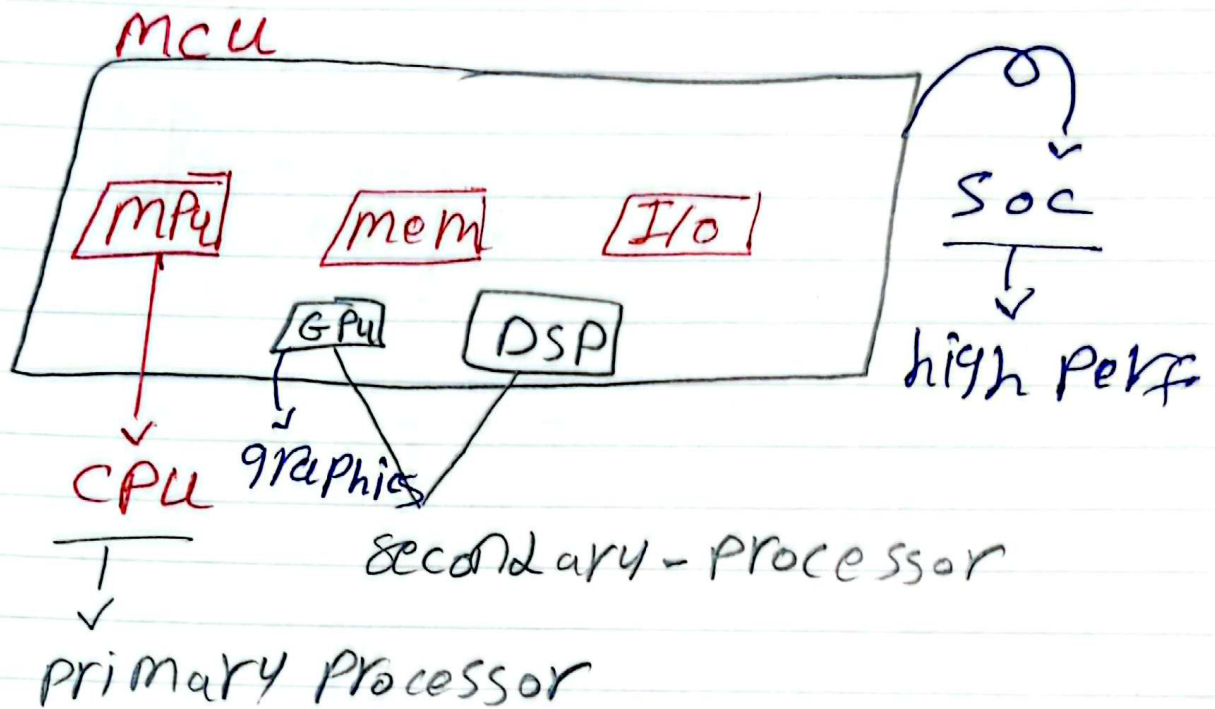 MCU
MPU mem I/O
SOC
GPU DSP
high perf
graphics
CPU
secondary-processor
primary processor